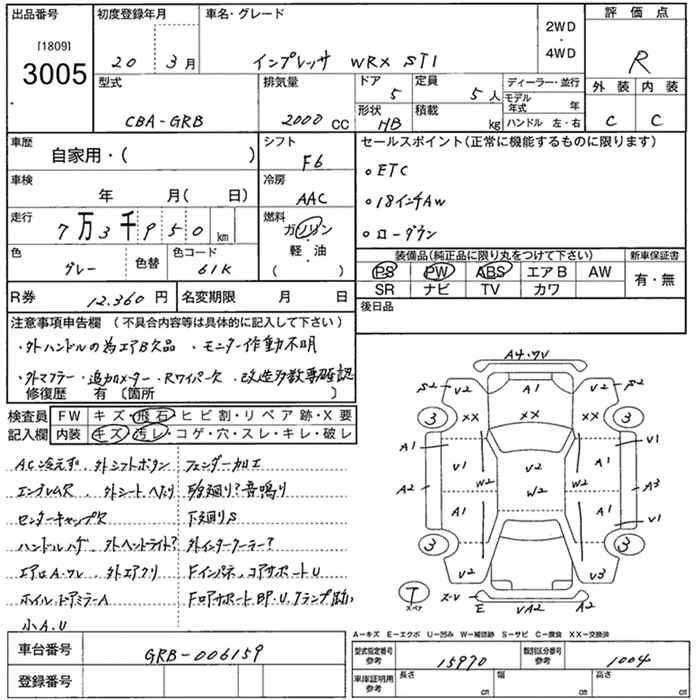 出品番号 初度登録年月 車名・グレード 2WD・4WD 評価点
[1809] 3005 20 3月 インプレッサ WRX STI R
型式 排気量 ドア 5 定員 5人 ディーラー・並行 外装 内装
モデル年式 年
CBA-GRB 2000 CC 形状 HB 積載 kg ハンドル 左・右 C C
車歴 シフト セールスポイント(正常に機能するものに限ります)
自家用・( ) F6 。ETC
車検 冷房
年 月( 日) AAC 。18インチAW
走行 燃料
7万3千950km ガソリン 。ローダウン
色 色替 色コード 軽・油 装備品(純正品に限り丸をつけて下さい) 新車保証書
グレー 61K ( ) PS PW ABS エアB AW 有・無
SR ナビ TV カワ
R券 12,360円 名変期限 月 日 後日品
注意事項申告欄(不具合内容等は具体的に記入して下さい)
・外ハンドルの為エアB欠品 ・モニター作動不明
・外マフラー・追加メーター・Rワイパー欠・改造多数要確認
修復歴 有(箇所
検査員 FW キズ・飛石・ヒビ割・リペア跡・X要
記入欄 内装 キズ・汚レ・コゲ・穴・スレ・キレ・破レ
AC冷えず 外シフトボタン フェンダー加工
エンブレム欠 外シートへたり 異音鳴り
センターキャップ欠 下廻りS
ハンドルハゲ 外ヘッドライト? 外インタークーラー?
エアロA・ワレ 外エアクリ Fインパネ、コアサポートU
ホイル、ドアミラーA
小A.U
A4・ワV
S2 V2 A1 V2 S2
3 XX XX XX 3
A1 V1 V2 V1 A1
A2 W2 W2 W2 A3
A1 A1 V1
3 3
V2 V3
T スペア
エV E VA2 A2
A-キズ E-エクボ U-凹み W-補修跡 S-サビ C-腐食 XX-交換済
車台番号 GRB-006159 型式指定番号 参考 15970 類別区分番号 参考 1004
登録番号 車庫証明用 参考 長さ cm 幅 cm 高さ cm